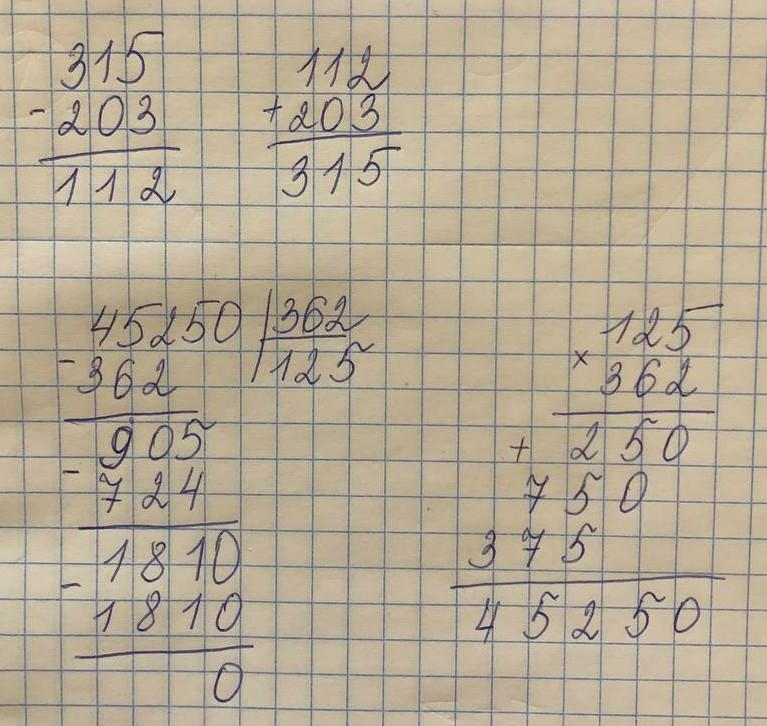 315
- 203
112
112
+ 203
315
45250 | 362
- 362 | 125
905
- 724
1810
- 1810
0
125
× 362
+ 250
750
375
45250